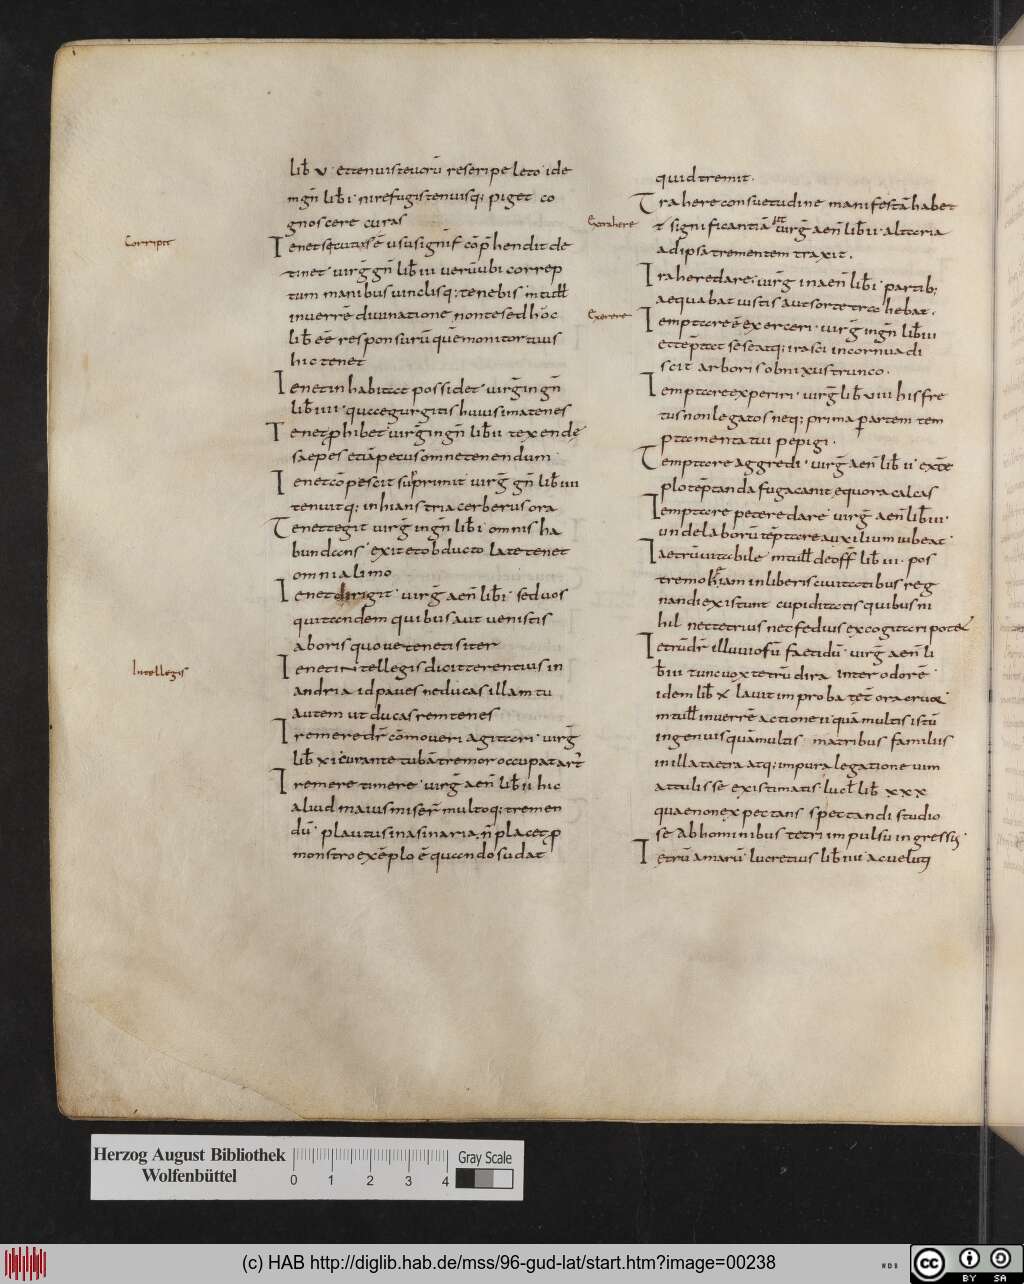 lib̄ v · et tenuiste uorū reseripe leto · ide
m gn̄ lib̄ i · ni refugis tenuisq; piget co
gnoscere curas
Corripit
Tenet secutus ē usu signif̄ cōp̄hendit de
tinet · uirḡ gn̄ lib̄ iii uerū ubi correp
tum manibus uinclisq; tenebis m tull̄
in uerrē diuinatione non te sed hōc
lib̄ eē responsurū quē monitor tuus
hic tenet
Tenet in habitat possidet · uirḡ in gn̄
lib̄ iiii · quae gurgitis huius ima tenes
Tenet p̄hibet uirḡ in gn̄ lib̄ ii texendę
saepes etiā pecus omne tenendum ·
Tenet cōpescit sup̄rimit uirḡ gn̄ lib̄ iiii
tenuitq; inhians tria cerberus ora
Tenet tegit uirḡ in gn̄ lib̄ i omnis ha
bundans · exit et obducto late tenet
omnia limo
Tenet dirigit · uirḡ aen̄ lib̄ i · sed uos
qui tandem quibus aut uenistis
ab oris quo ue tenetis iter
Intellegis
Tenet intellegis dicit terentius in
andria id paues ne ducas illam tu
autem ut ducas rem tenes
Tremere dr̄ cōmoueri agitari · uirḡ
lib̄ xi curante tubā tremor occupat art̄
Tremere timere · uirḡ aen̄ lib̄ ii hic
aliud maius miser̄ multoq; tremen
dū · plautus in asinaria n̄ placet p
monstro exēplo ē quando sudat
quid tremit ·
Trahere consuetudine manifestā habet
Exrahere
t̄ significantiā ut uirḡ aen̄ lib̄ ii · altaria
ad ipsa trementem traxit ·
Trahere dare · uirḡ in aen̄ lib̄ i · partib;
aequabat iustis aut sorte trahebat ·
Exerere
Temptare ē exerceri · uirḡ in gn̄ lib̄ iii
et tēptat sese atq; irasci in cornua di
scit arboris obnixus trunco ·
Temptare experiri · uirḡ lib̄ viii his fre
tus non legatos neq; prima p artem tem
ptamenta tui pepigi ·
Temptare aggredi · uirḡ aen̄ lib̄ ii exte
plo tēptanda fuga canit ęquora calcas
Temptare petere dare uirḡ aen̄ lib̄ iii ·
unde laborū tēptare auxilium iubeat ·
Taetrū uitabile m tull̄ de off̄ lib̄ iii · pos
tremo
in liberis ciuitatibus reg
nandi existunt cupiditatis quibus ni
hil nec tetrius nec fedius excogitari potest
Tetrū dr̄ illuuiosū faetidū uirḡ aen̄ li
b̄ iii tunc uox tetrū dira inter odorē ·
idem lib̄ x lauit improba tet̄ ora cruor
m tull̄ in uerrē actione ii quā multis istū
ingenuis quā multis · matribus familiis
in illa taetra atq; impura legatione uim
attulisse existimatis · lucl̄ lib̄ xxx
quae non expectans spectandi studio
se ab hominibus tetri impulsū ingressus ·
Tetrū amarū · lucretius lib̄ iiii ac uelutq
Herzog August Bibliothek
Wolfenbüttel
0 1 2 3 4
Gray Scale
(c) HAB http://diglib.hab.de/mss/96-gud-lat/start.htm?image=00238
WDB
cc BY SA